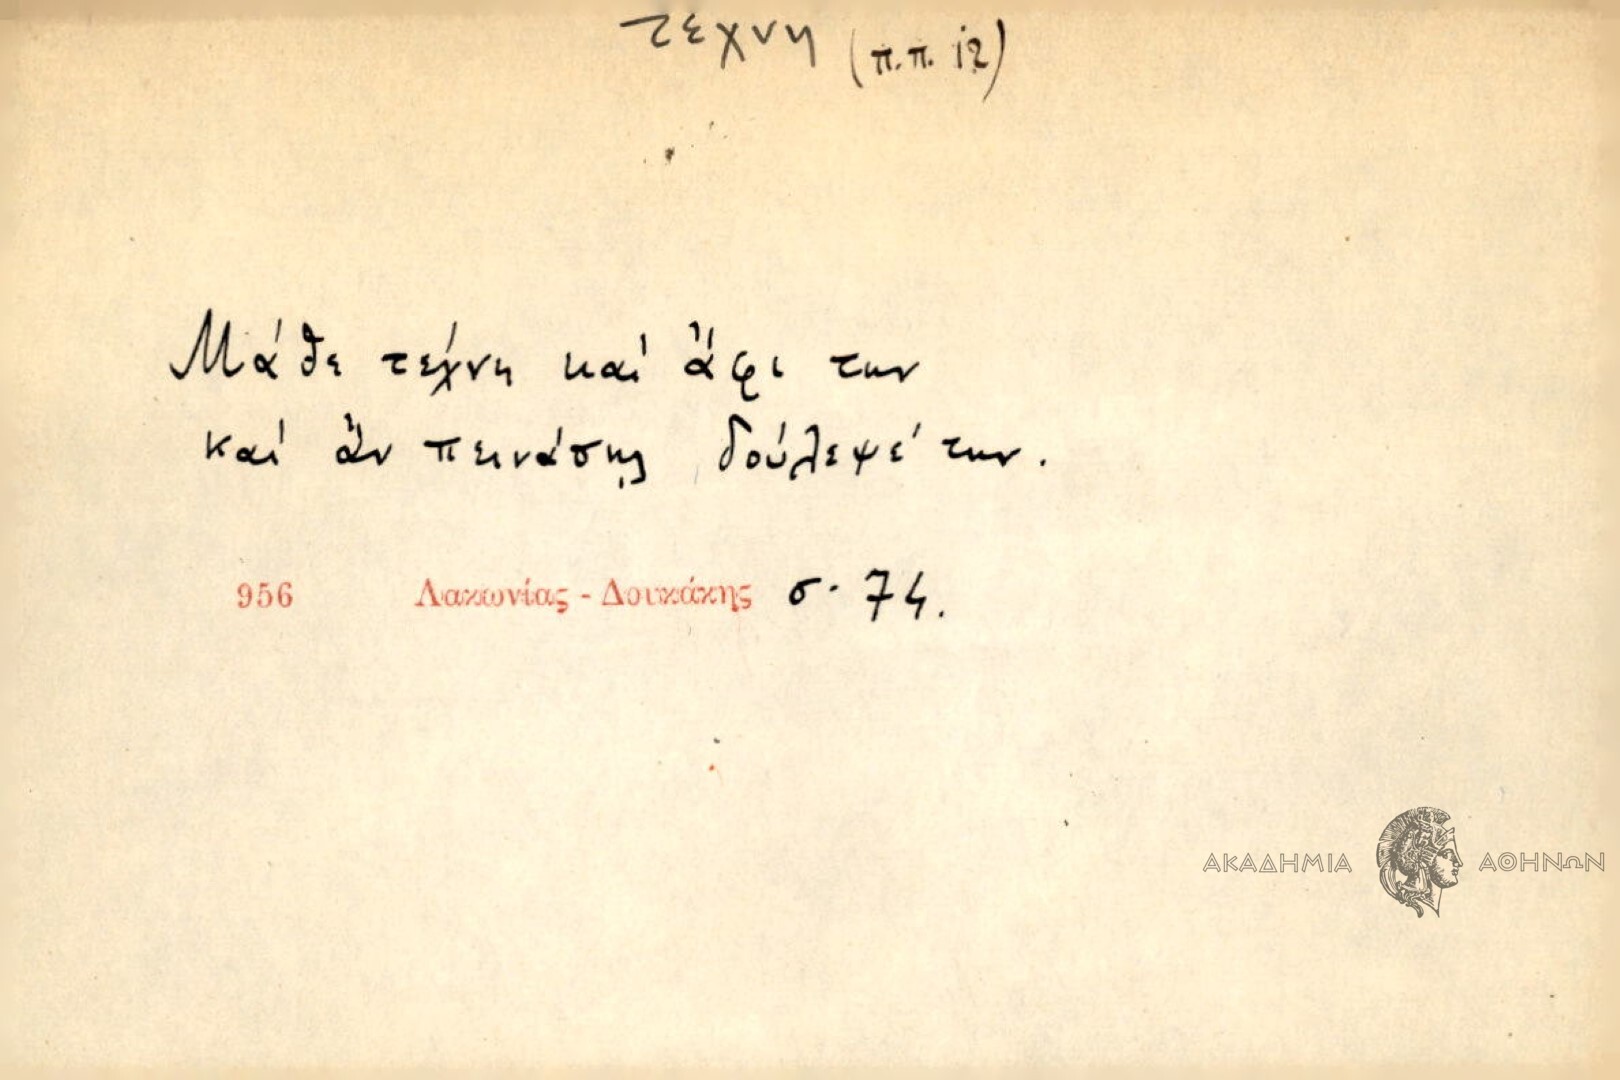 τεχνη (π.π. 12)
Μάθε τέχνη καί ἄφι την
καί ἄν πεινάσῃς δούλεψέ την.
956 Λακωνίας - Δουκάκης σ. 74.
ΑΚΑΔΗΜΙΑ ΑΘΗΝΩΝ